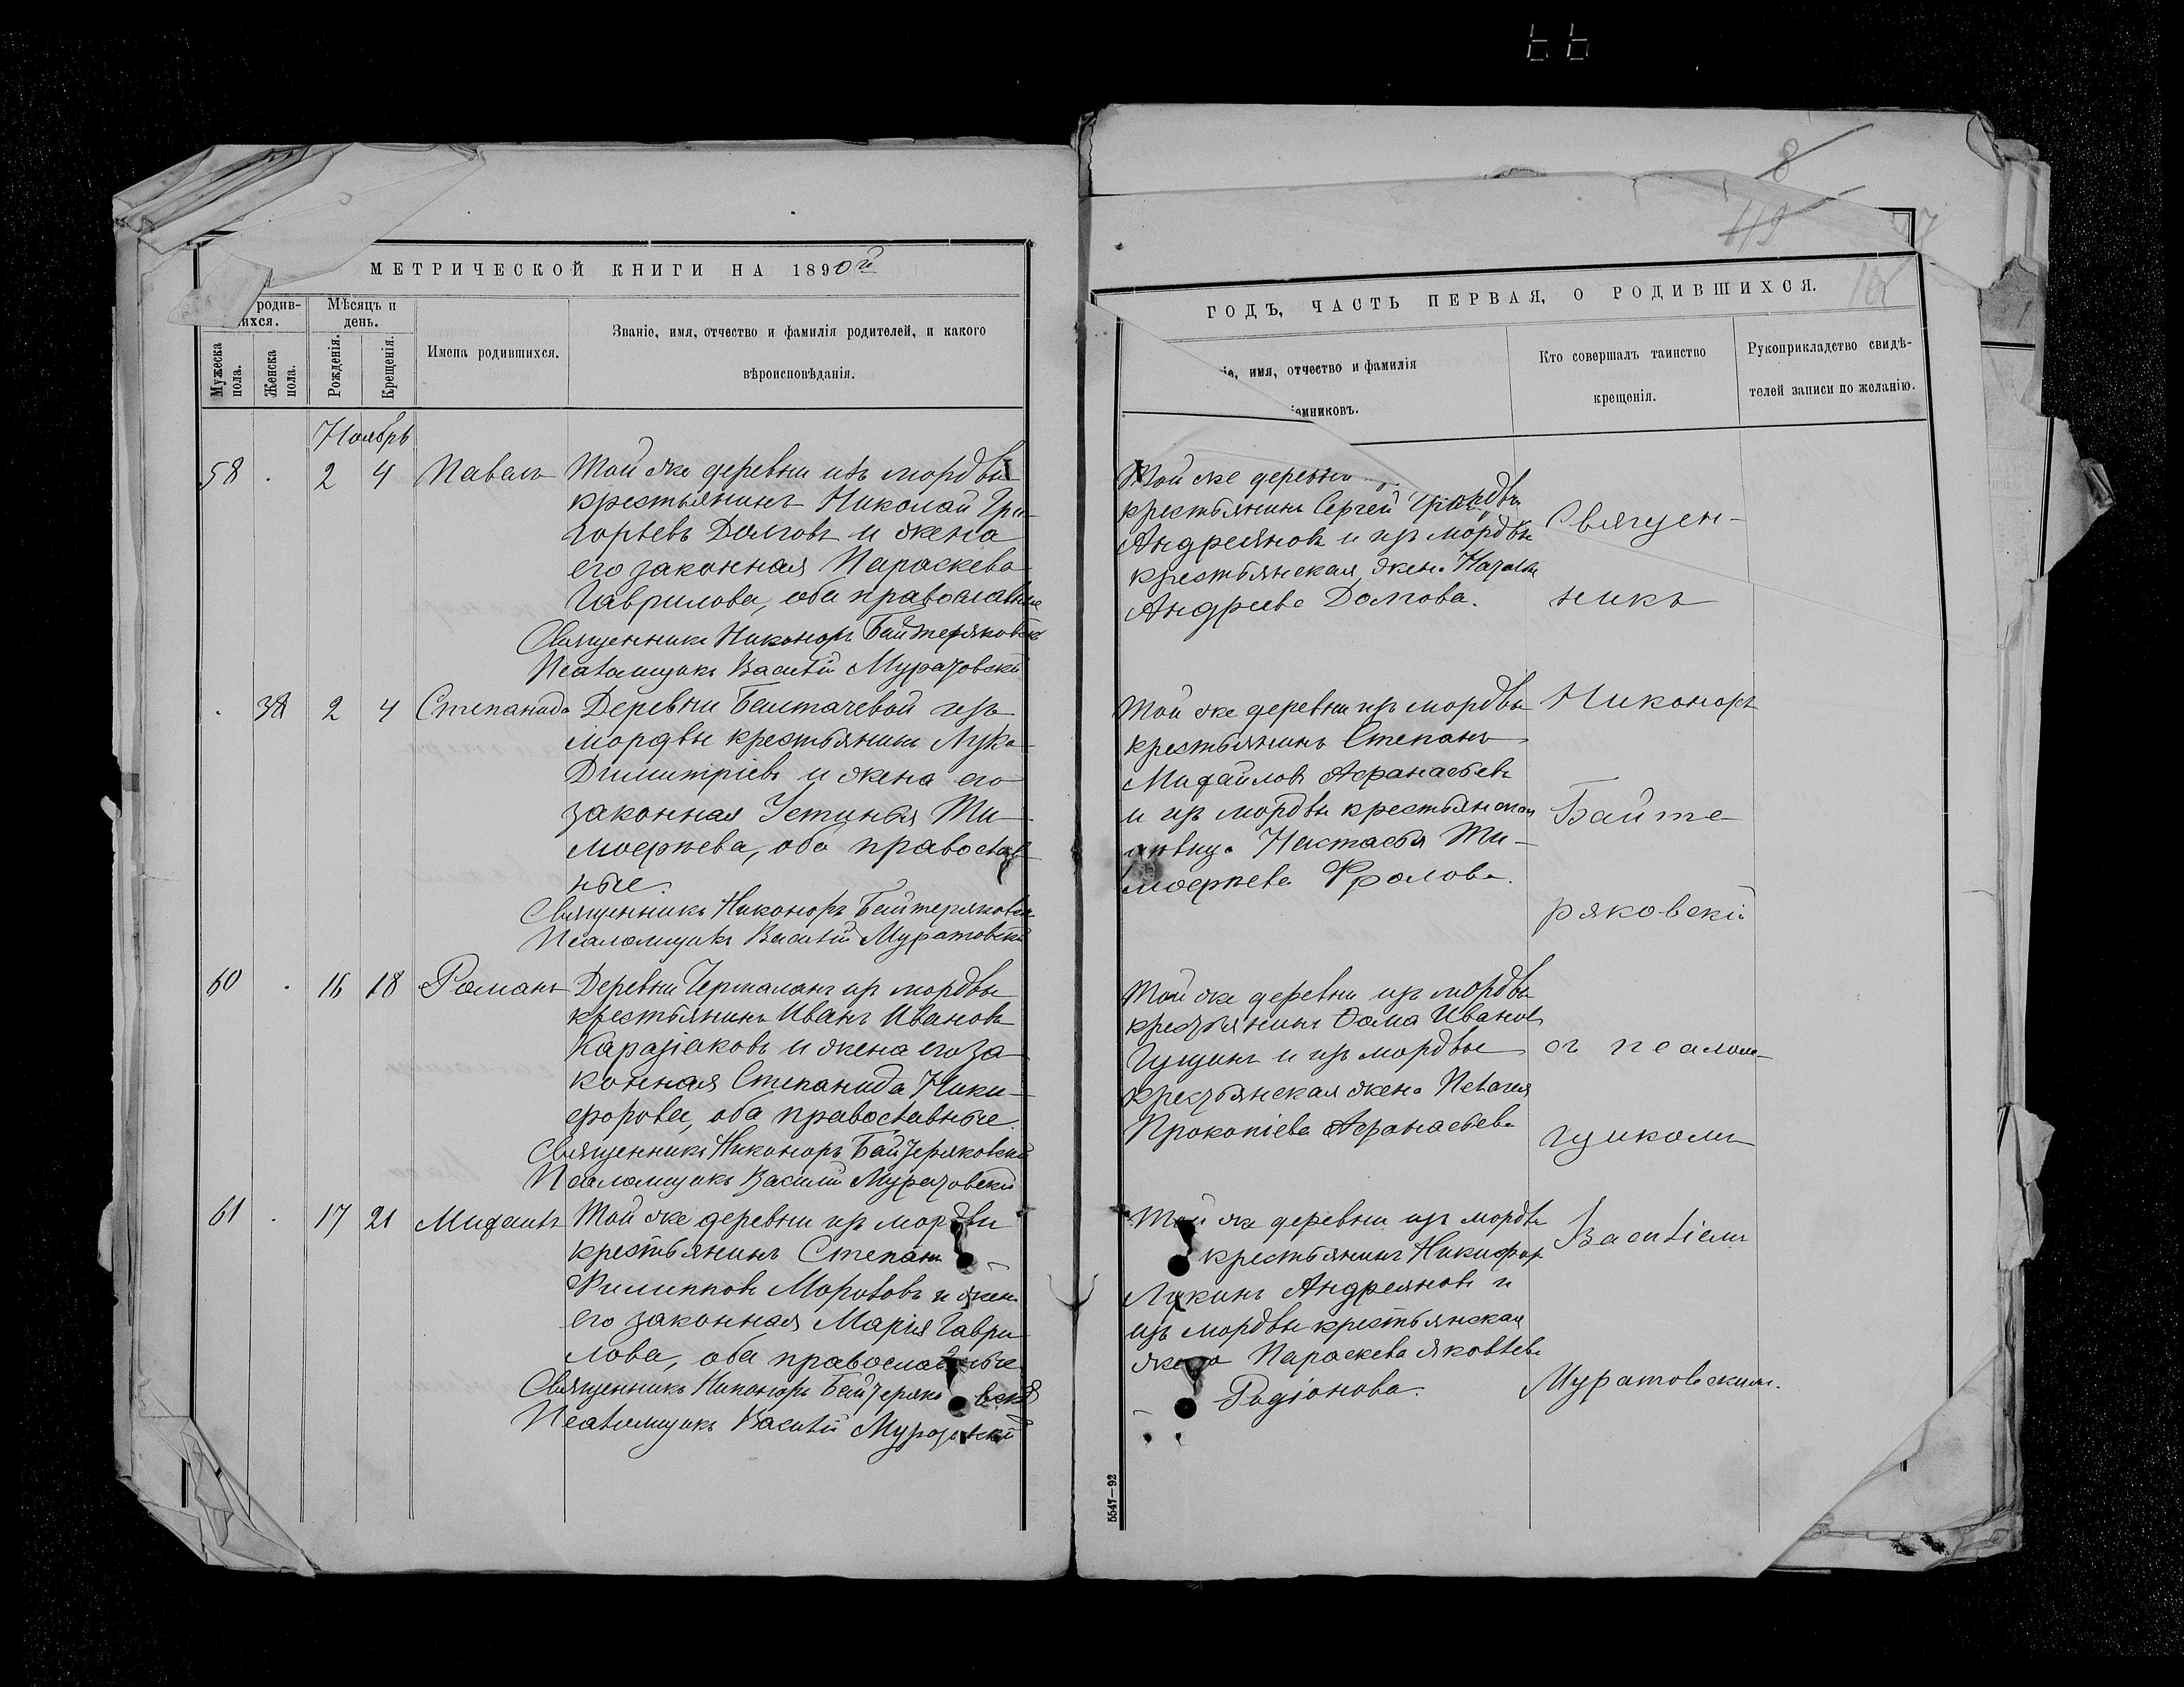 8
МЕТРИЧЕСКОЙ КНИГИ НА 1890й
родив-
ихся.
Мѣсяцъ и
день.
Мужеска
пола.
Женска
пола.
Рожденія.
Крещенія.
Имена родившихся.
Званіе, имя, отчество и фамилія родителей, и какого
вѣроисповѣданія.
Ноябрь
58 2 4 Павелъ Той же деревни изъ мордвы
крестьянинъ Николай Гри-
горьевъ Долговъ и жена
его законная Параскева
Гаврилова, оба православные
Священникъ Никоноръ Байтеряковскій
Псаломщикъ Василій Муратовскій
38 2 4 Степанида Деревни из
мордвы крестьянинъ Лука
Димитріевъ и жена его
законная Устинья Ти-
моѳеева, оба православ-
ные.
Священникъ Никоноръ Байтеряковскій
Псаломщикъ Василій Муратовскій
60 16 18 Романъ Деревни изъ мордвы
крестьянинъ Иванъ Ивановъ
и жена его за-
конная Степанида Ники-
форова, оба православные.
Священникъ Никоноръ Байтеряковскій
Псаломщикъ Василій Муратовскій
61 17 21 Михаилъ Той же деревни изъ мордвы
крестьянинъ Степанъ
Филипповъ Морозовъ и жена
его законная Марія Гаври-
лова, оба православные
Священникъ Никоноръ Байтеряковскій
Псаломщикъ Василій Муратовскій
ГОДЪ, ЧАСТЬ ПЕРВАЯ, О РОДИВШИХСЯ.
іе, имя, отчество и фамилія
іемниковъ.
Кто совершалъ таинство
крещенія.
Рукоприкладство свидѣ-
телей записи по желанію.
Той же деревни
крестьянинъ Сергей
Андреяновъ и изъ мордвы
крестьянская жена
Андреева Долгова.
Той же деревни изъ мордвы
крестьянинъ Степанъ
Михайловъ Афанасьевъ
и изъ мордвы крестьянская
дѣвица Настасья Ти-
моѳеева Фролова.
Той же деревни изъ мордвы
крестьянинъ Ѳома Ивановъ
и изъ мордвы
крестьянская жена Пелагея
Прокопіева Афанасьева
Той же деревни изъ мордвы
крестьянинъ Никифоръ
Лукинъ Андреяновъ и
изъ мордвы крестьянская
жена Параскева Яковлева
Родіонова.
Священ-
никъ
Никоноръ
Байте-
ряковскій
съ псалом-
щикомъ
Василіемъ
Муратовскимъ.
5547—92